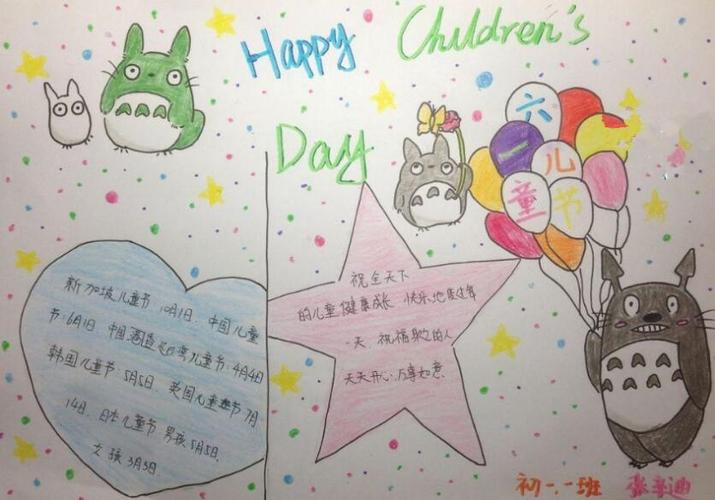 Happy Children's
Day
六
一 儿
童 节
新加坡儿童节 10月1日. 中国儿童
节:6月1日 中国 台湾儿童节:4月4日
韩国儿童节:5月5日 英国儿童节7月
14日. 日本儿童节 男孩5月5日.
女孩3月3日.
祝全天下
的儿童健康成长 快乐地
一天 祝福 的人
天天开心.万事如意.
初一.一班 张